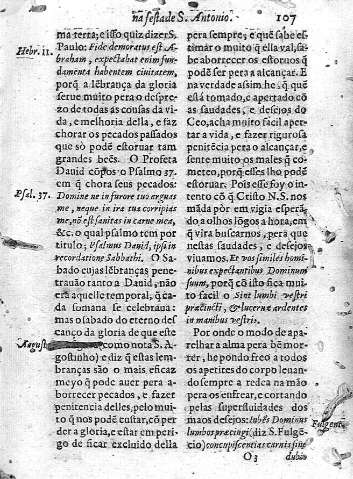 na festa de S. Antonio. 107
Hebr. 11.
ma terra; e isso quiz dizer S.
Paulo: Fide demoratus est A-
braham, expectabat enim fun-
damenta habentem civitatem,
porq̃ a lẽbrança da gloria
serue muito pera o despre-
zo de todas as cousas da vi-
da, e melhoria della, e faz
chorar os pecados passados
que sò podẽ estoruar tam
grandes bẽs. O Profeta
Dauid cõpos o Psalmo 37.
em q̃ chora seus pecados:
Psal. 37.
Domine ne in furore tuo arguas
me, neque in ira tua corripias
me, nõ est sanitas in carne mea,
&c. o qual psalmo tem por
titulo; Psalmus Dauid, ipsi in
recordatione Sabbathi. O Sa-
bado cujas lẽbranças pene-
trauão tanto a Dauid, não
era aquelle temporal, q̃ ca-
da somana se celebraua:
mas o sabado do eterno des-
canço da gloria de que este
August
como nota S. A-
gostinho) e diz q̃ estas lem-
branças são o mais eficaz
meyo q̃ pode auer pera a-
borrecer pecados, e fazer
penitencia delles, pelo mui-
to q̃ nos podẽ custar, cõ per
der a gloria, e estar em peri-
go de ficar excluido della
pera sempre; e quẽ sabe es-
timar o muito q̃ ella val, sa-
be aborrecer os estoruos q̃
podẽ ser pera a alcançar. E
na verdade assim he, q̃ que
està tomado, e apertado cõ
as saudades, e desejos do
Ceo, acha muito facil aper-
tar a vida, e fazer rigurosa
penitẽcia pera o alcançar, e
sente muito os males q̃ co-
meteo, porq̃ esses lhe podẽ
estoruar. Pois esse foy o in-
tento cõ q̃ Cristo N. S. nos
mãda por em vigia esperã-
do a olhos lõgos a hora, em
q̃ vira buscarnos, pera que
nestas saudades, e desejos
viuamos. Et vos similes homi-
nibus expectantibus Dominum
suum, porq̃ cõ isto fica mui
to facil o Sint lumbi vestri
præcincti, & lucernæ ardentes
in manibus vestris.
Por onde o modo de apa-
relhar a alma pera bẽ mor-
rer, he pondo freo a todos
os apetites do corpo leuan-
do sempre a redea na mão
pera os enfrear, e cortando
pelas superfluidades dos
maos desejos: iubẽt Dominus
lumbos præcingi (diz S. Fulgẽ-
Fulgent.
cio) concupiscentias carnis sine
O 3 dubio